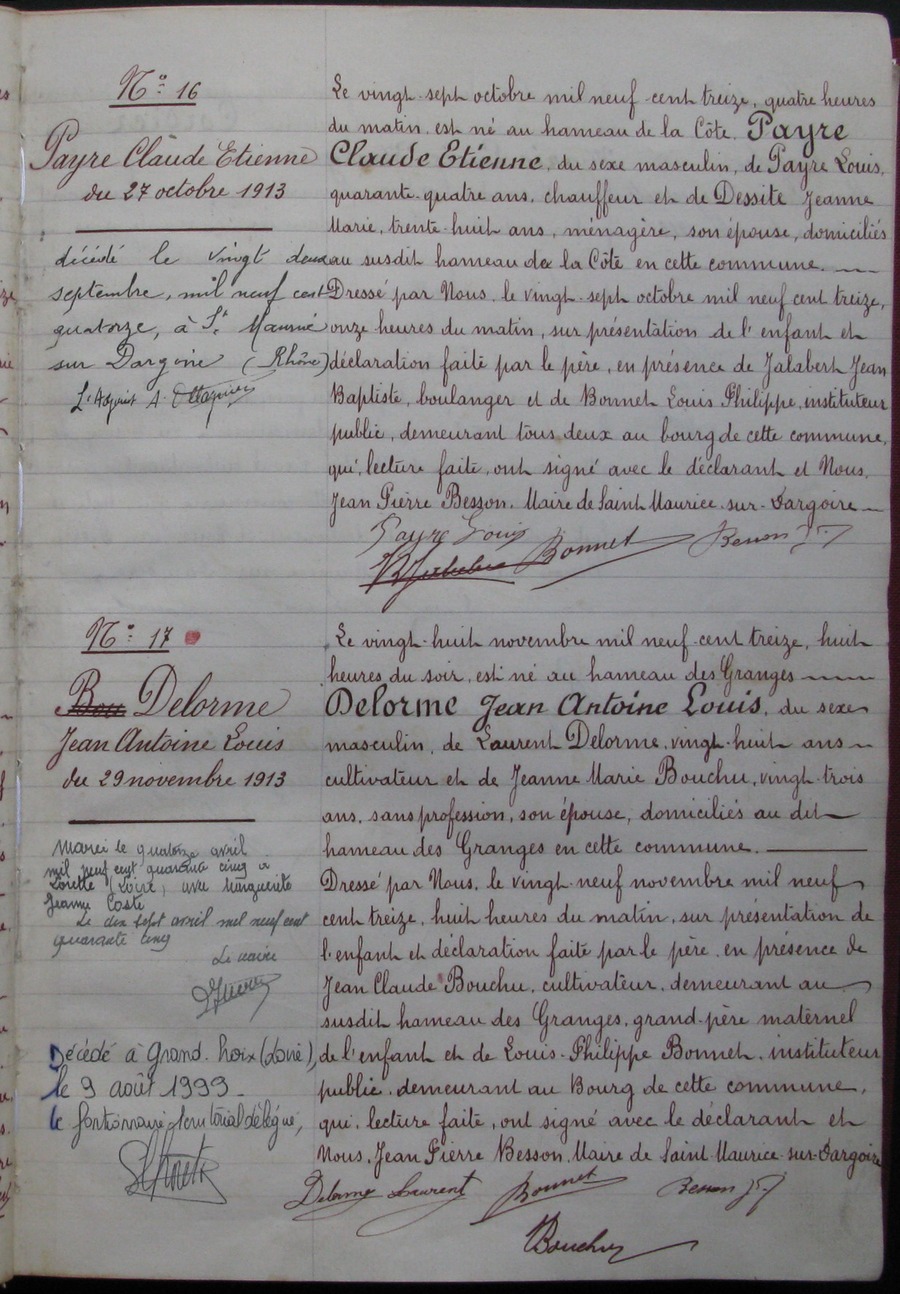 N° 16
Payre Claude Etienne
du 27 octobre 1913
décédé le vingt deux
septembre, mil neuf cent
quatorze, à St Maurice
sur Dargoire (Rhône)
L'Adjoint A.
Le vingt-sept octobre mil neuf cent treize, quatre heures
du matin, est né au hameau de la Côte, Payre
Claude Etienne, du sexe masculin, de Payre Louis,
quarante-quatre ans, chauffeur et de Dessite Jeanne
Marie, trente-huit ans, ménagère, son épouse, domiciliés
au susdit hameau de la Côte en cette commune.
Dressé par Nous, le vingt-sept octobre mil neuf cent treize,
onze heures du matin, sur présentation de l'enfant et
déclaration faite par le père, en présence de Jalabert Jean
Baptiste, boulanger et de Bonnet Louis Philippe, instituteur
public, demeurant tous deux au bourg de cette commune,
qui, lecture faite, ont signé avec le déclarant et Nous,
Jean Pierre Besson, Maire de Saint Maurice-sur-Dargoire
Payre Louis
Bonnet Besson J.P.
N° 17
Bou Delorme
Jean Antoine Louis
du 29 novembre 1913
Marié le quatorze avril
mil neuf cent quarante cinq à
Lorette (Loire) avec Marguerite
Jeanne Coste
Le dix sept avril mil neuf cent
quarante cinq
Le maire
Décédé à Grand-Croix (Loire),
le 9 août 1999
le fonctionnaire territorial délégué,
Le vingt-huit novembre mil neuf-cent treize, huit
heures du soir, est né au hameau des Granges
Delorme Jean Antoine Louis, du sexe
masculin, de Laurent Delorme, vingt-huit ans
cultivateur et de Jeanne Marie Bouchu, vingt-trois
ans, sans profession, son épouse, domiciliés au dit
hameau des Granges en cette commune.
Dressé par Nous, le vingt-neuf novembre mil neuf
cent treize, huit heures du matin, sur présentation de
l'enfant et déclaration faite par le père, en présence de
Jean Claude Bouchu, cultivateur, demeurant au
susdit hameau des Granges, grand-père maternel
de l'enfant et de Louis-Philippe Bonnet, instituteur
public, demeurant au Bourg de cette commune,
qui, lecture faite, ont signé avec le déclarant et
Nous, Jean Pierre Besson, Maire de Saint-Maurice-sur-Dargoire
Delorme Laurent Bonnet Besson J.P.
Bouchu